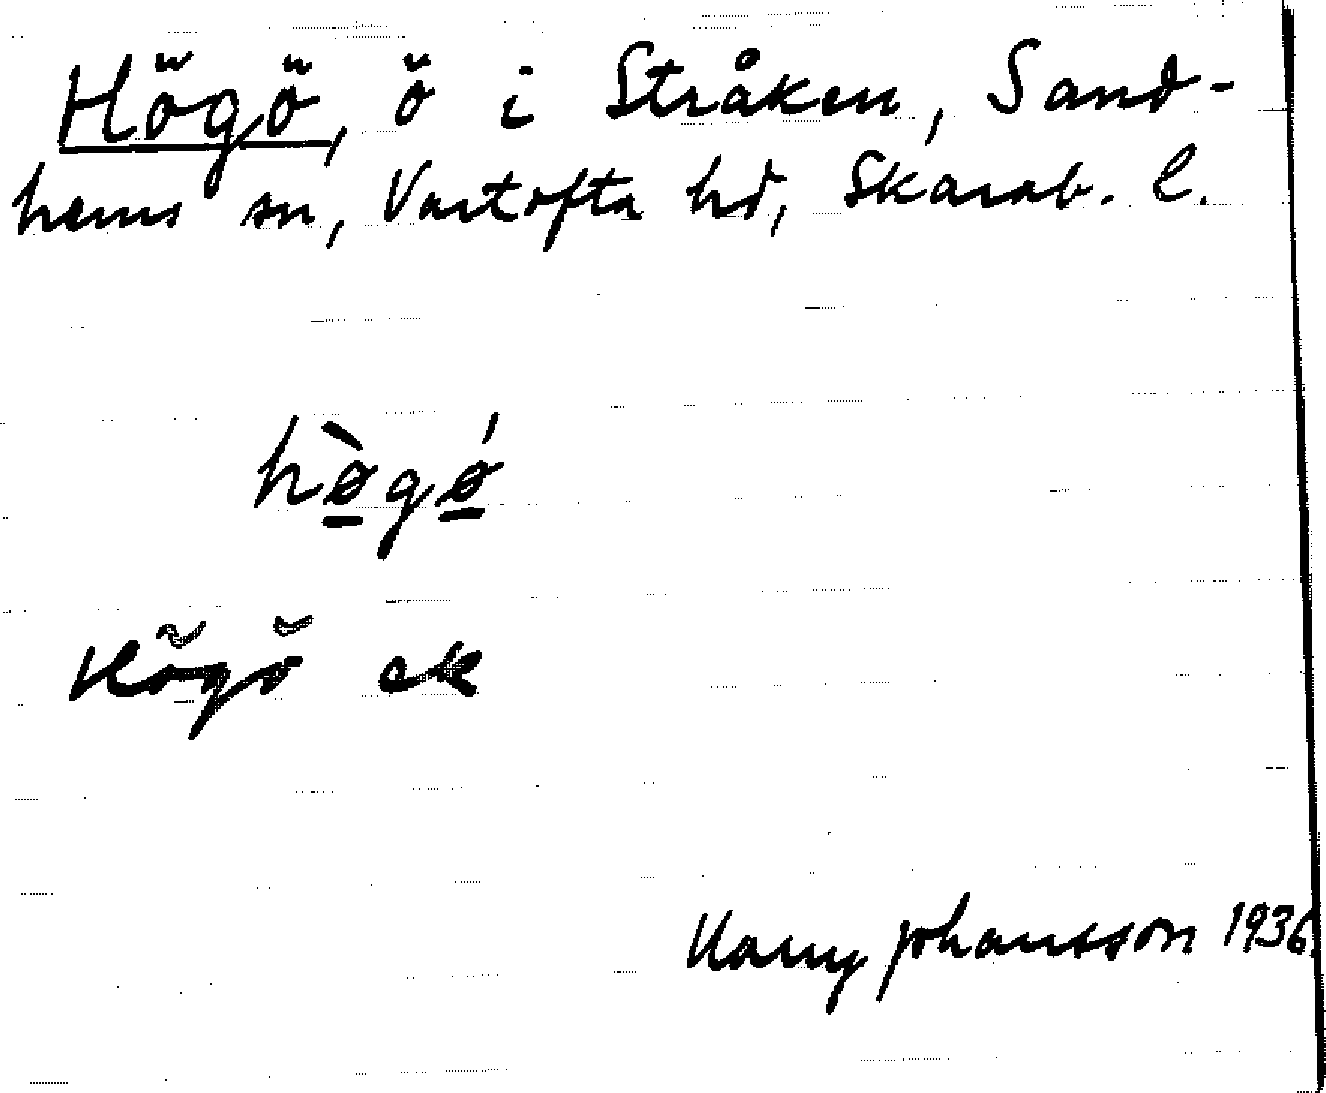 Högö, ö i Stråken, Sand-
hems sn, Vartofta hd, Skarab. l.
hø̀gǿ
Högö ek
Harry Johansson 1936.